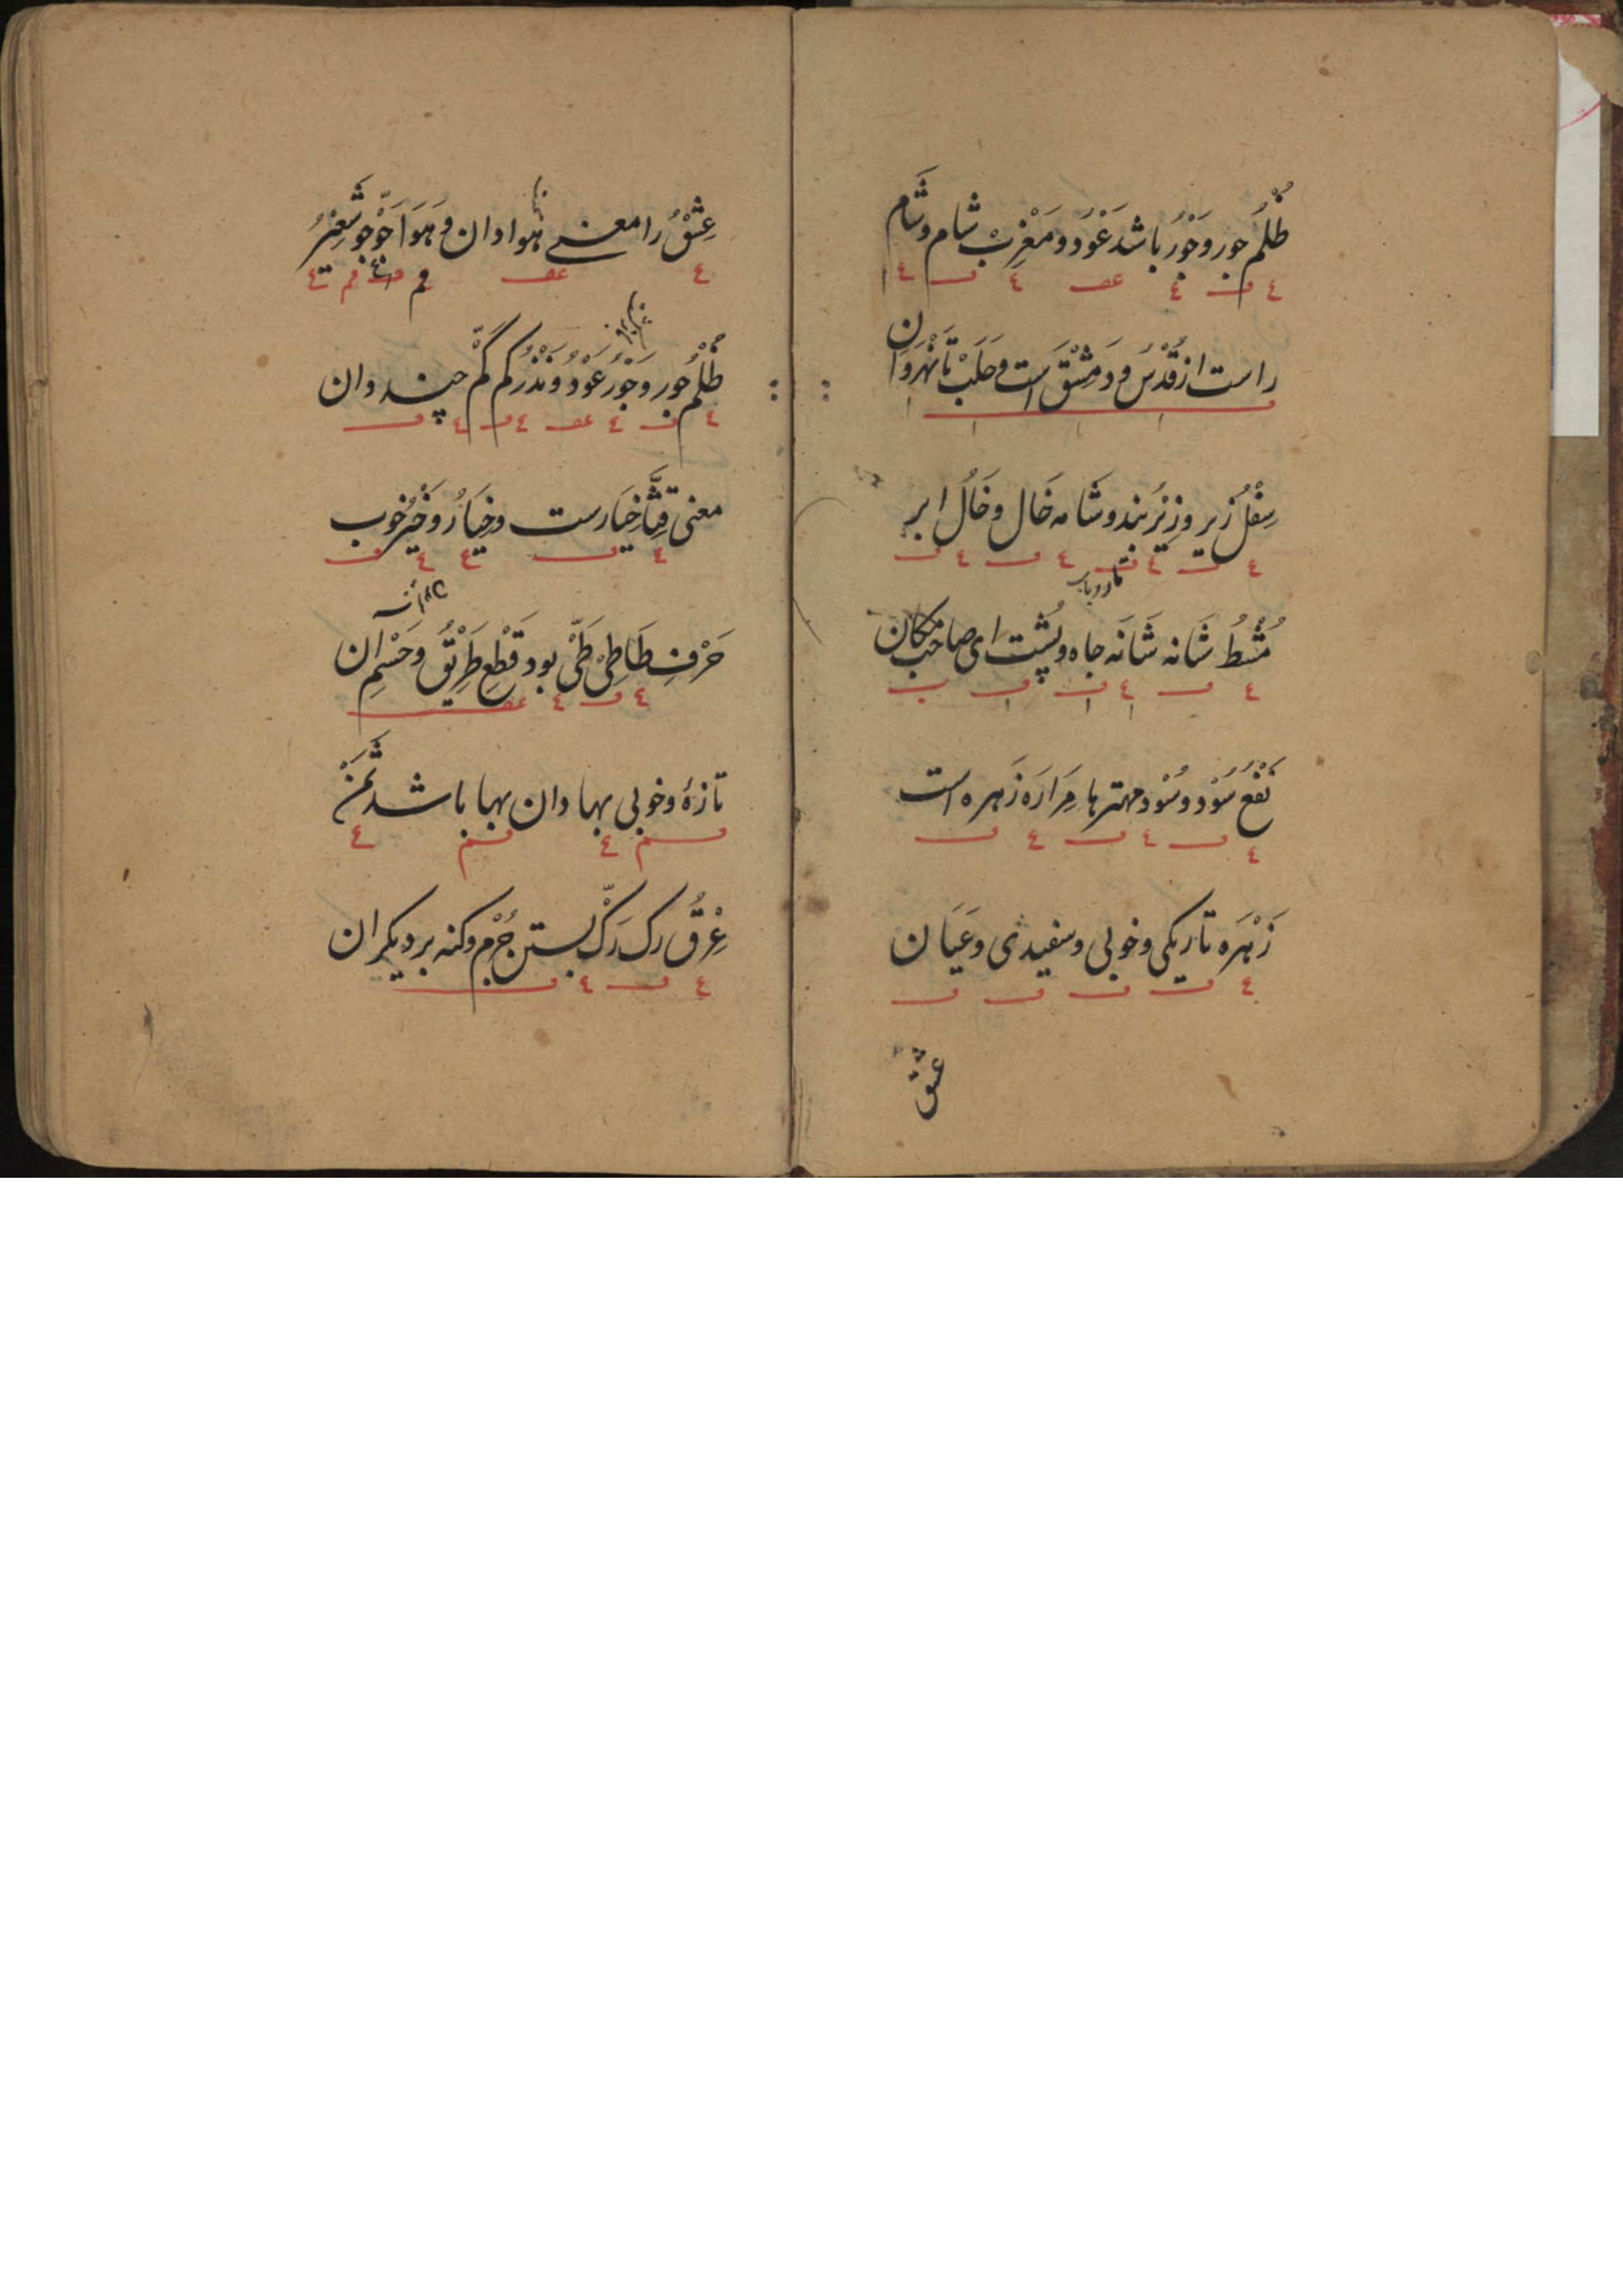 ظُلْمُ جور و جَوْرُ باشد عَوْد و مَغْرِبْ شام و شَام
راست از قُدْسُ و دَمِشْقَ است و حَلَبْ تا نَهْرَوَان
سِفْلُ زیر و زِیْرُ بند و شَامه خَال و خَالُ ابر
مُشْطُ شَانه شَانَه جاه و پُشت ای صاحب مکان
نَفْعُ سُوْد و سُوْد مهترها مِرَارَه زَهره است
زَهْرَه تاریکی و خوبی و سفیدی و عَیَان
عشق
عِشْقُ را معنی هوا دان و هَوَا جَوّ جو شَعِیْرُ
ظُلْمُ جور و جَوْرُ عَوْدُ و نَذْرُ کم کَمْ چند دان
معنی قِثَّا خِیَارست و خِیَارُ و خَیْرُ خوب
حَرْفِ طَا طِیْ طَیّ بود قَطْعِ طَرِیْقُ و حَسْمِ ان
تازهٔ و خوبی بها دان بها باشد ثَمَنْ
عِرْقُ رک رَکّ بستن جُرْم و کنه بر دیکران